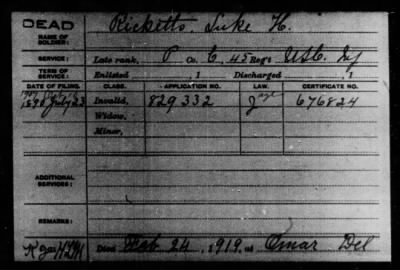 DEAD
NAME OF SOLDIER: Ricketts, Luke H.
SERVICE: Late rank, P Co. C, 45 Reg't U.S.C. Inf
TERM OF SERVICE: Enlisted , 1 Discharged , 1
DATE OF FILING. CLASS. APPLICATION NO. LAW. CERTIFICATE NO.
1890 July 23 Invalid, 829 332 676824
Widow,
Minor,
ADDITIONAL SERVICES:
REMARKS:
Died Feb 24, 1919, at Omar Del